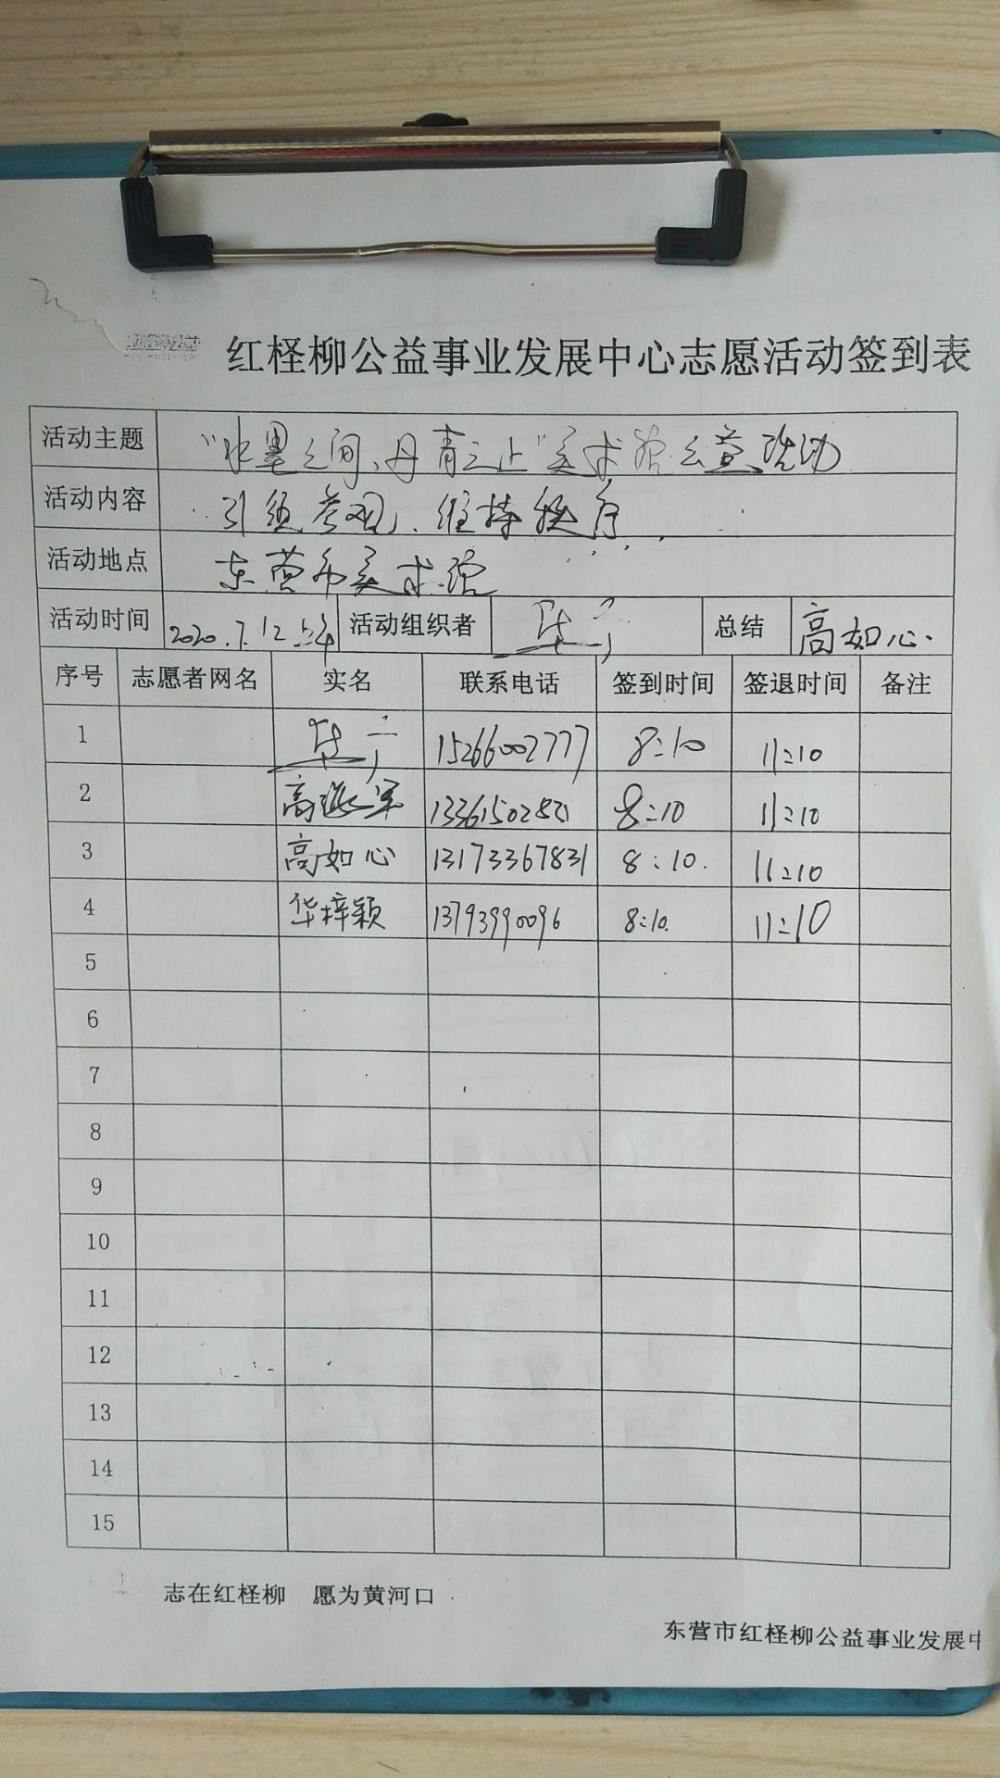 红柽柳公益事业发展中心志愿活动签到表
活动主题 “水墨之间、丹青之上”美术馆公益活动
活动内容 引领参观、维持秩序
活动地点 东营市美术馆
活动时间 2020.7.12上午 活动组织者 总结 高如心
序号 志愿者网名 实名 联系电话 签到时间 签退时间 备注
1 15266002777 8:10 11:10
2 高 8:10 11:10
3 高如心 13173367831 8:10. 11:10
4 华梓颖 13793990096 8:10. 11:10
5
6
7
8
9
10
11
12
13
14
15
志在红柽柳 愿为黄河口
东营市红柽柳公益事业发展中